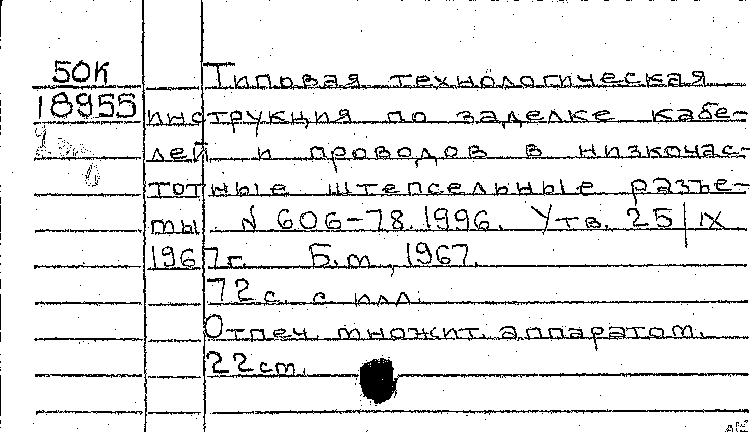 50К
18955
Типовая технологическая
инструкция по заделке кабе-
лей и проводов в низкочас-
тотные штепсельные разъе-
мы N 606-78.1996. Утв. 25/IX
1967г. Б.м., 1967.
72с. с илл.
Отпеч. множит. аппаратом.
22см.